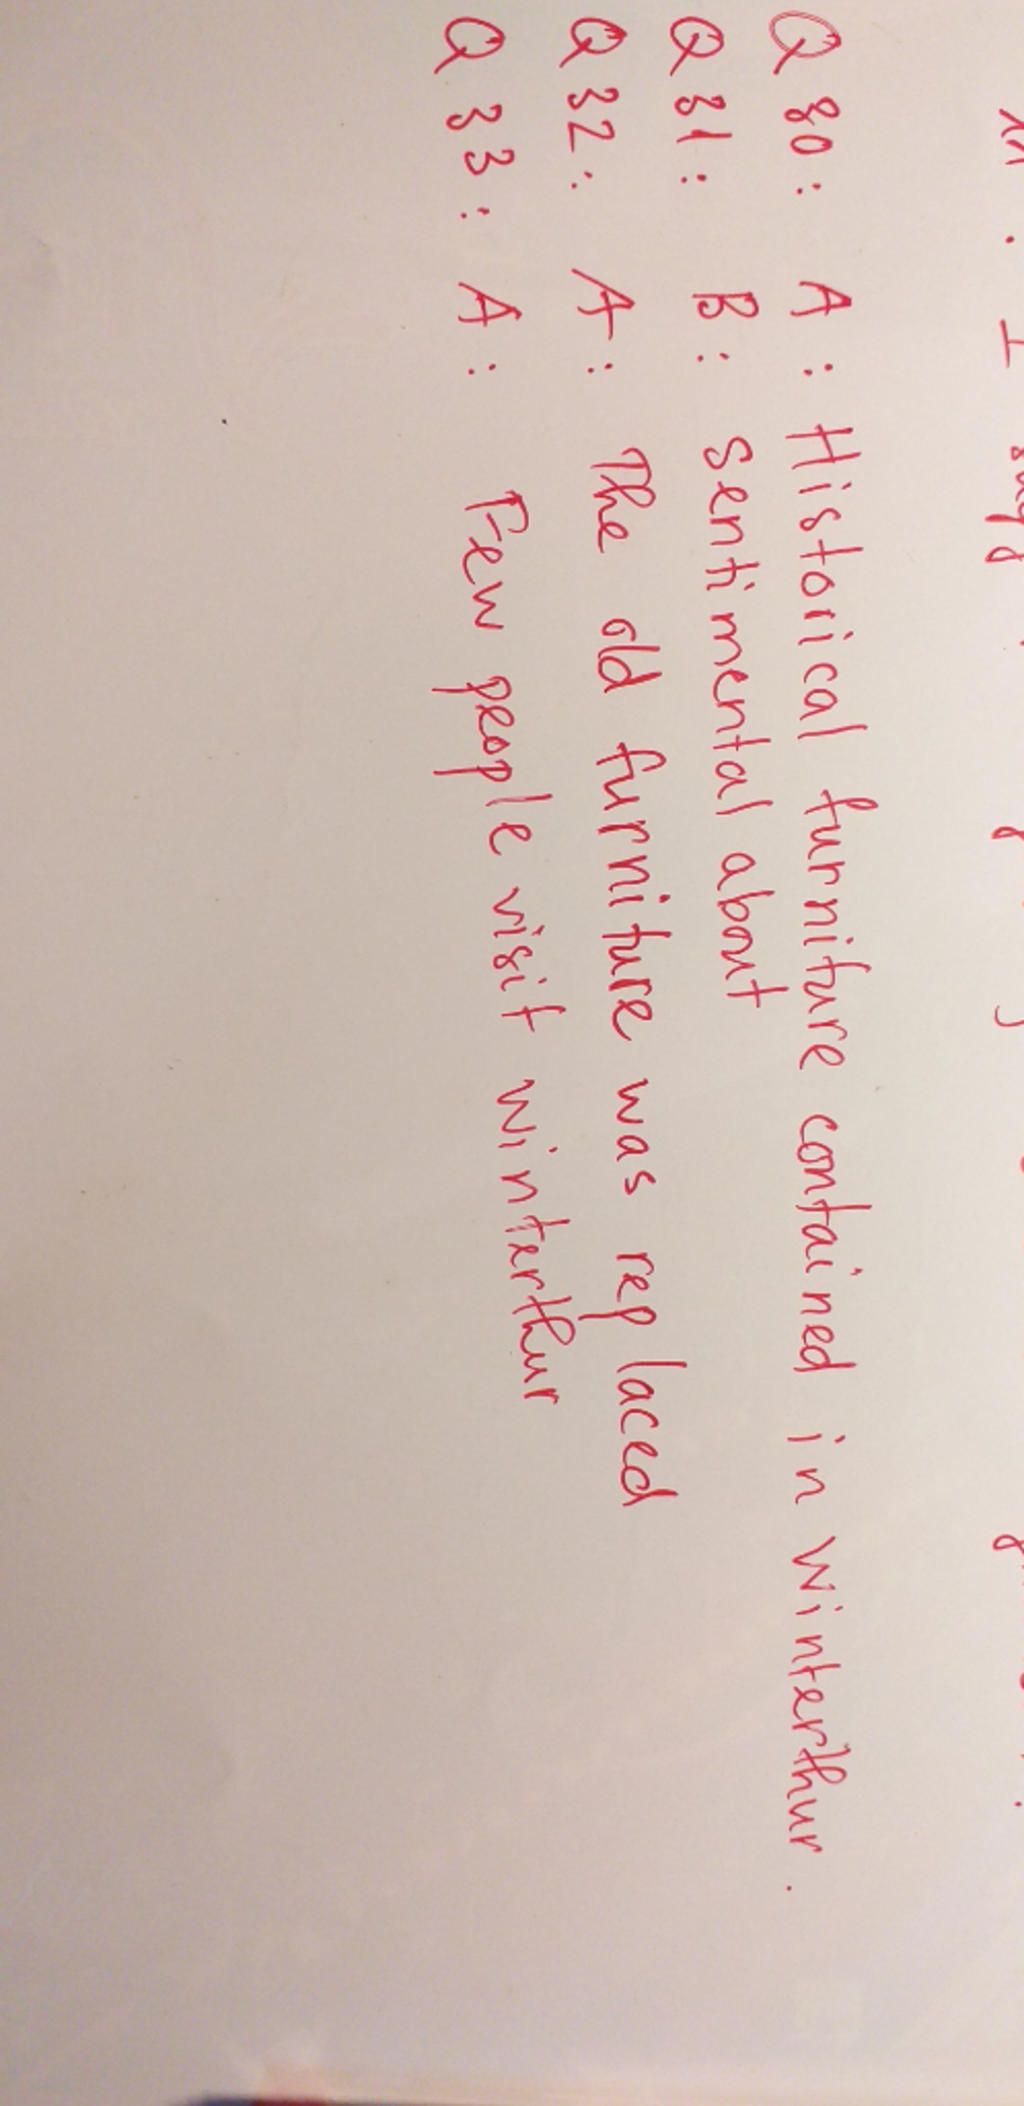 Q 30: A: Historical furniture contained in winterthur.
Q 31: B: sentimental about
Q 32: A: The old furniture was replaced
Q 33: A: Few people visit winterthur